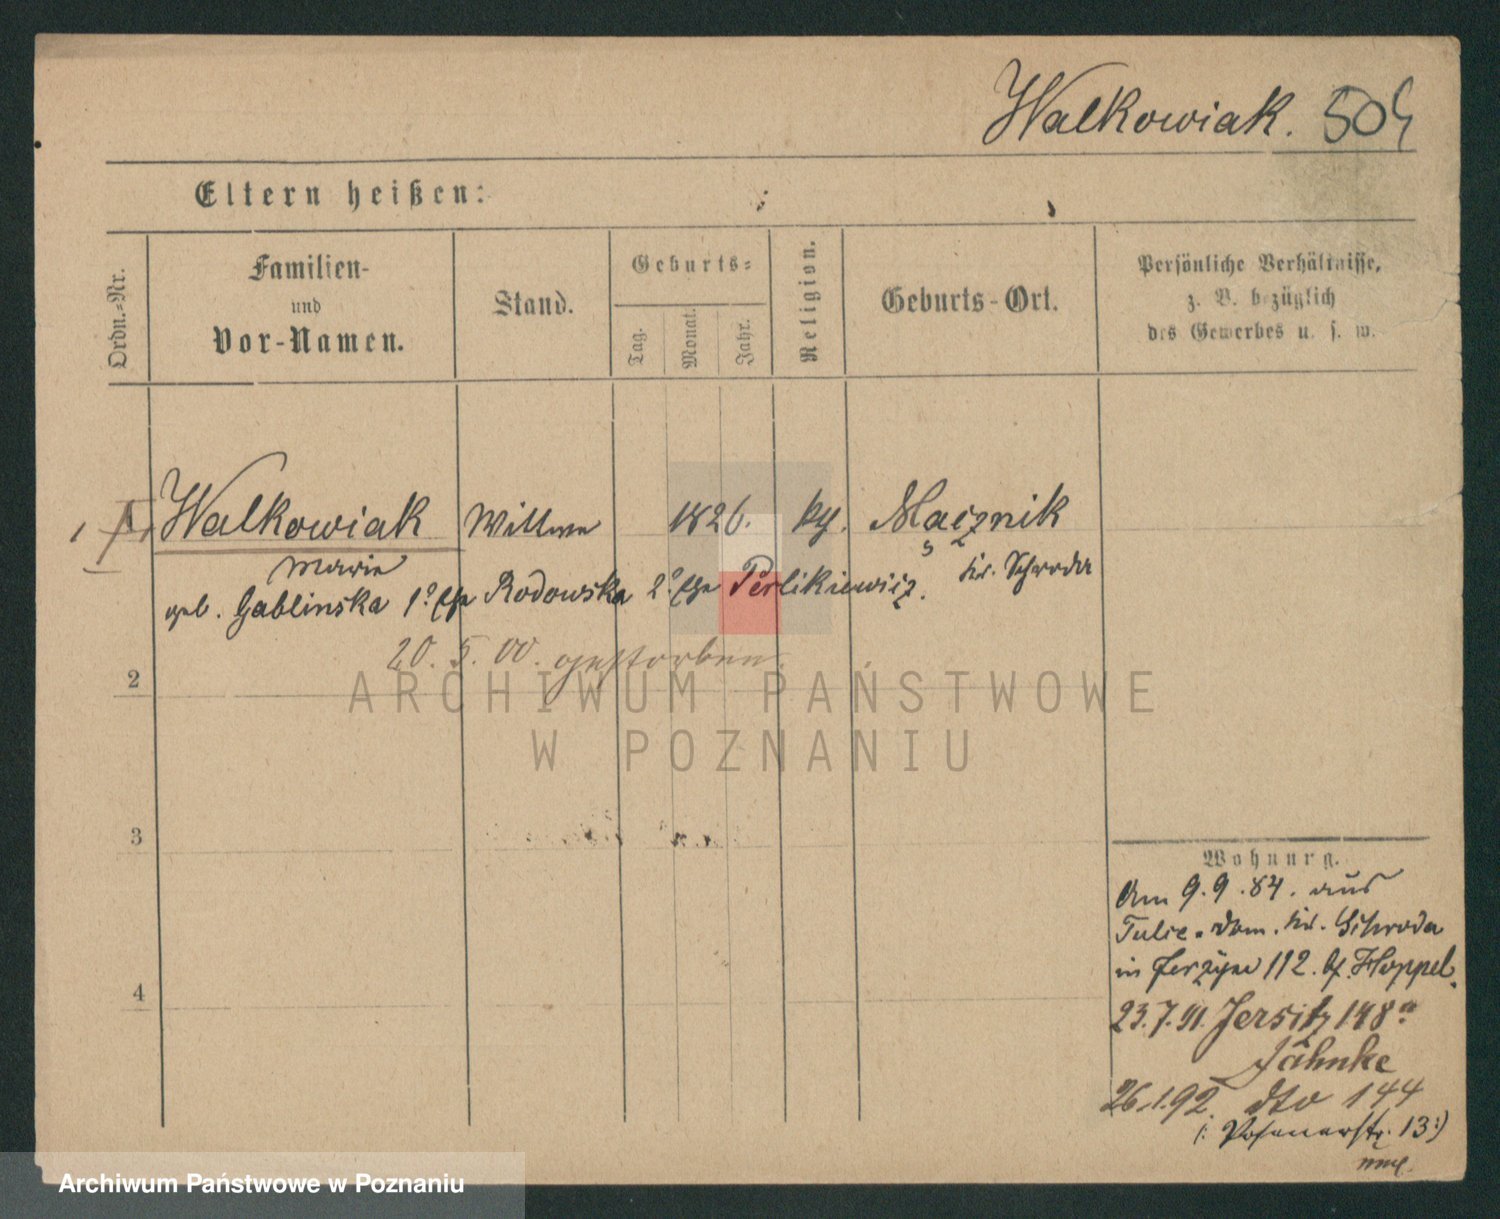 Walkowiak. 504
Eltern heißen:
Ordn.-Nr.
Familien-
und
Vor-Namen.
Stand.
Geburts-
Tag.
Monat.
Jahr.
Religion.
Geburts-Ort.
Persönliche Verhältnisse,
z. B. bezüglich
des Gewerbes u. s. w.
1 Walkowiak Wittwe 1826. Mącznik
Marie Kr. Schroda
geb. Gablinska 1º Ehe Rodowska 2º Ehe Perlikiewicz.
20. 5. 00. gestorben.
2
3
4
Wohnung.
Am 9.9.84. aus
Tulce-Dom. Kr. Schroda
in Jerzyce 112. b/ Hoppel.
23.7.91. Jersitz 148a
Jähnke
26.1.92. dto 144
(: Posenerstr. 13:)
ARCHIWUM PAŃSTWOWE
W POZNANIU
Archiwum Państwowe w Poznaniu